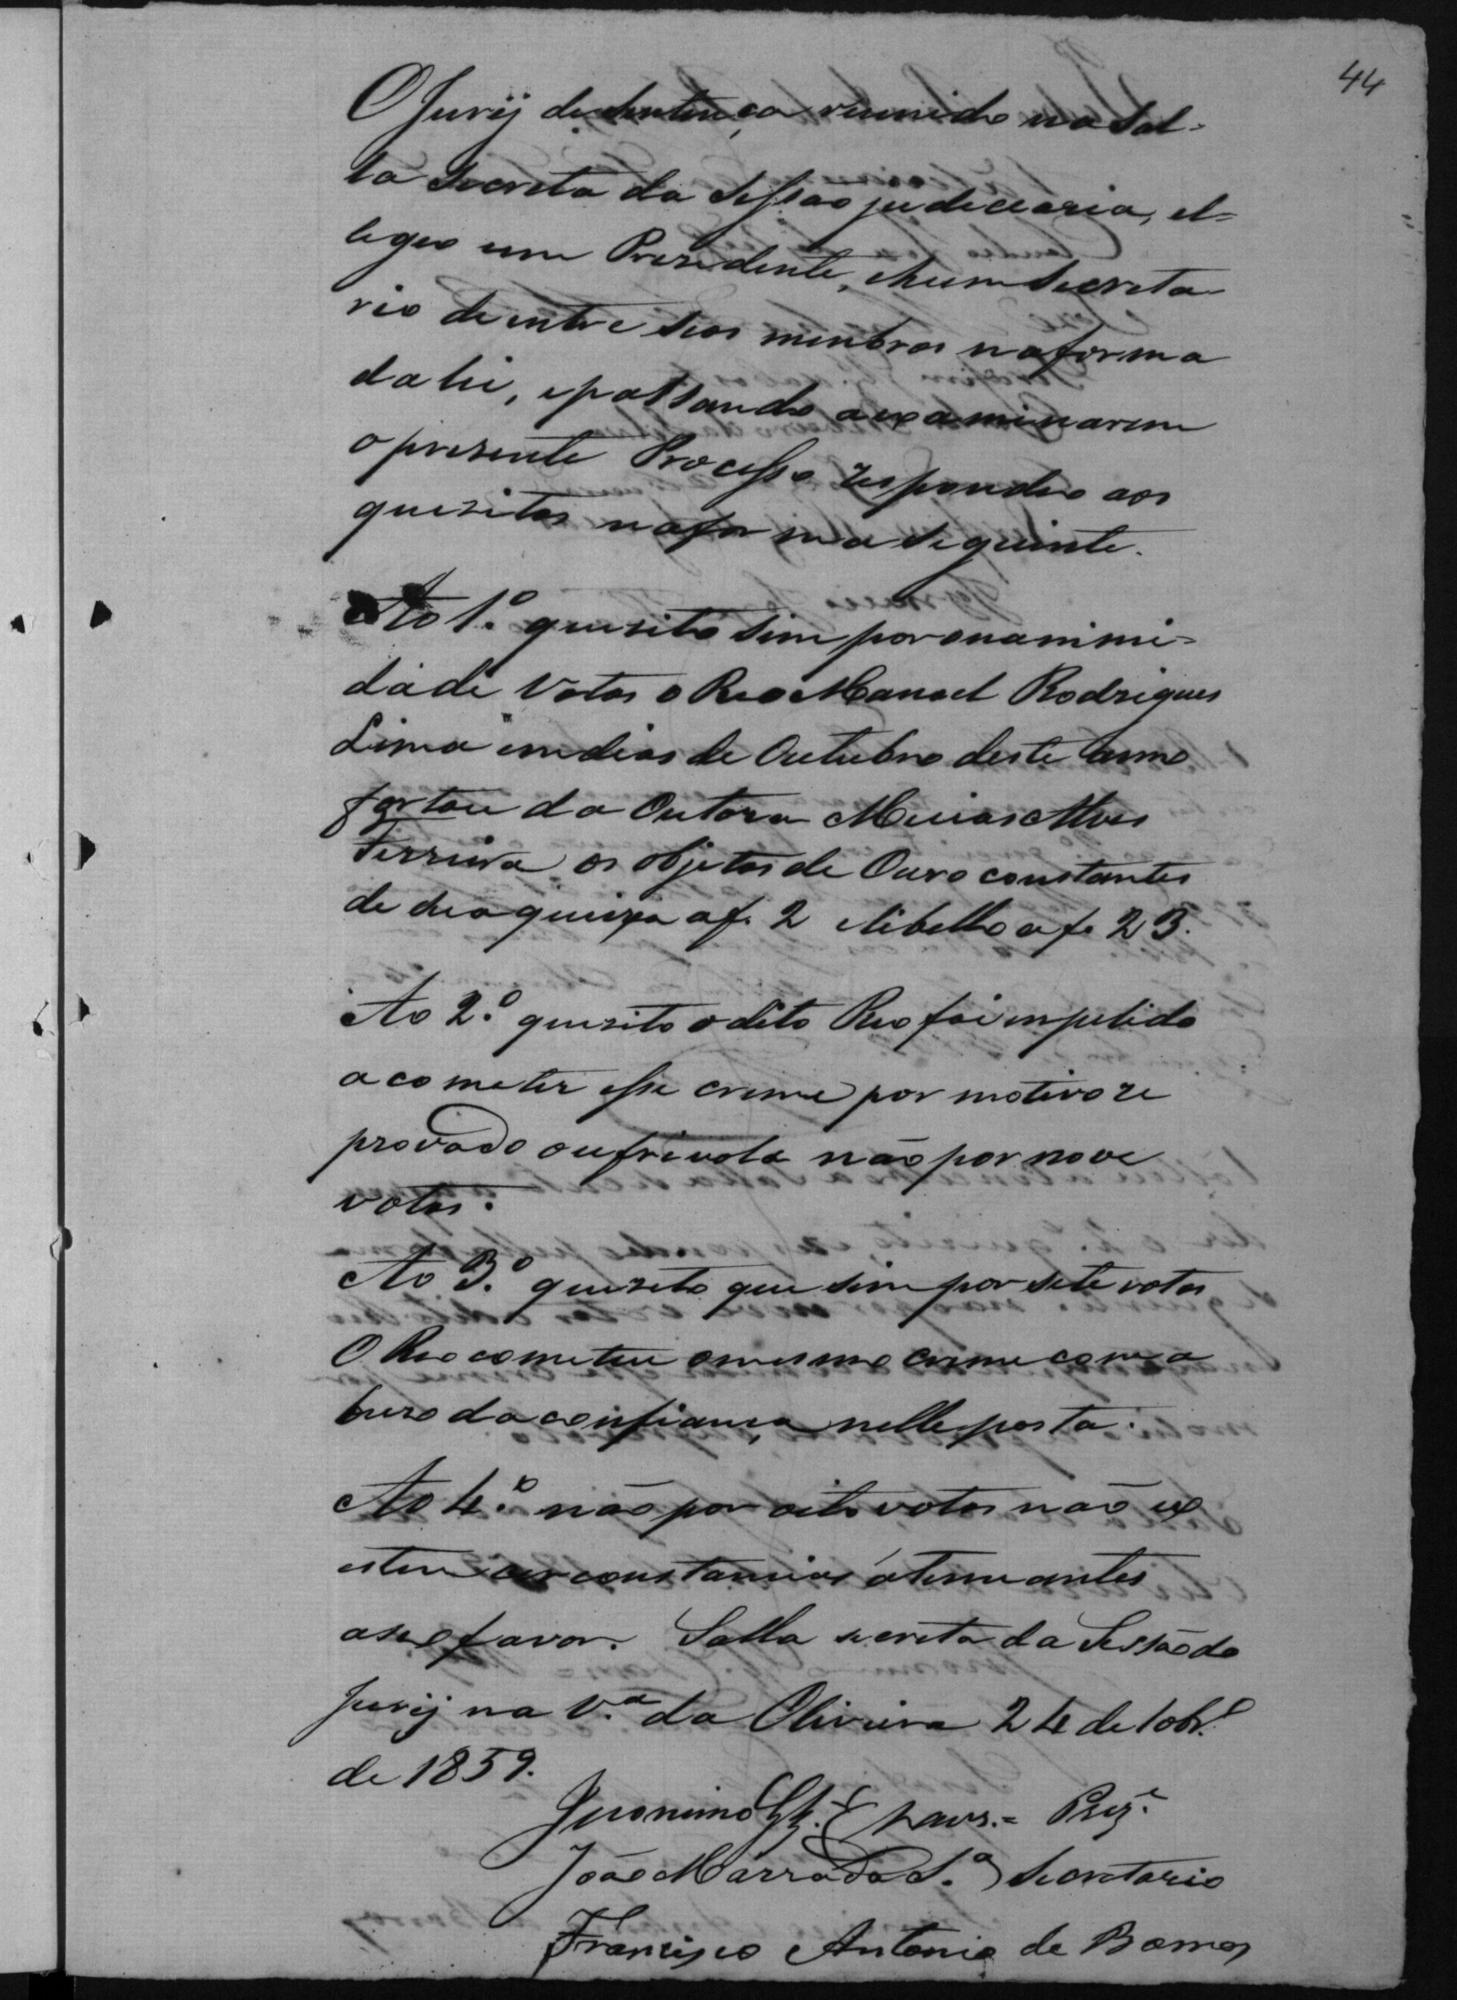 44
O Jurij de sentença reunido na Sal-
la Secreta da Sessão judiciaria, el-
legeo um Presidente, e hum Secreta
rio de entre seos membros na forma
da lei, e passando a examinarem
o presente Processo respondeo aos
quesitos na forma seguinte.
Ao 1.º quesito sim por onanimi-
dade Votos o Reo Manoel Rodrigues
Lima em dias de Outubro deste anno
fortou da Outora Alves
Ferreira os objetos de Ouro constantes
de sua queixa a f. 2 e libello a f. 23.
Ao 2.º quesito o dito Reo foi inpelido
a cometer esse crime por motivo re
provado ou frivolo não por nove
votos.
Ao 3.º quesito que sim por sete votos
O Reo cometeu o mesmo crime com a
buzo da confiança nelle posta.
Ao 4.º não por oito votos não ex
istem circonstancias atenuantes
a seo favor. Salla secreta da Sessão do
Jurij na V.ª da Oliveira 24 de 10br.º
de 1859.
Jeronimo Chavs.= Prez.e
João S.ª Secretario
Francisco Antonio de Barros